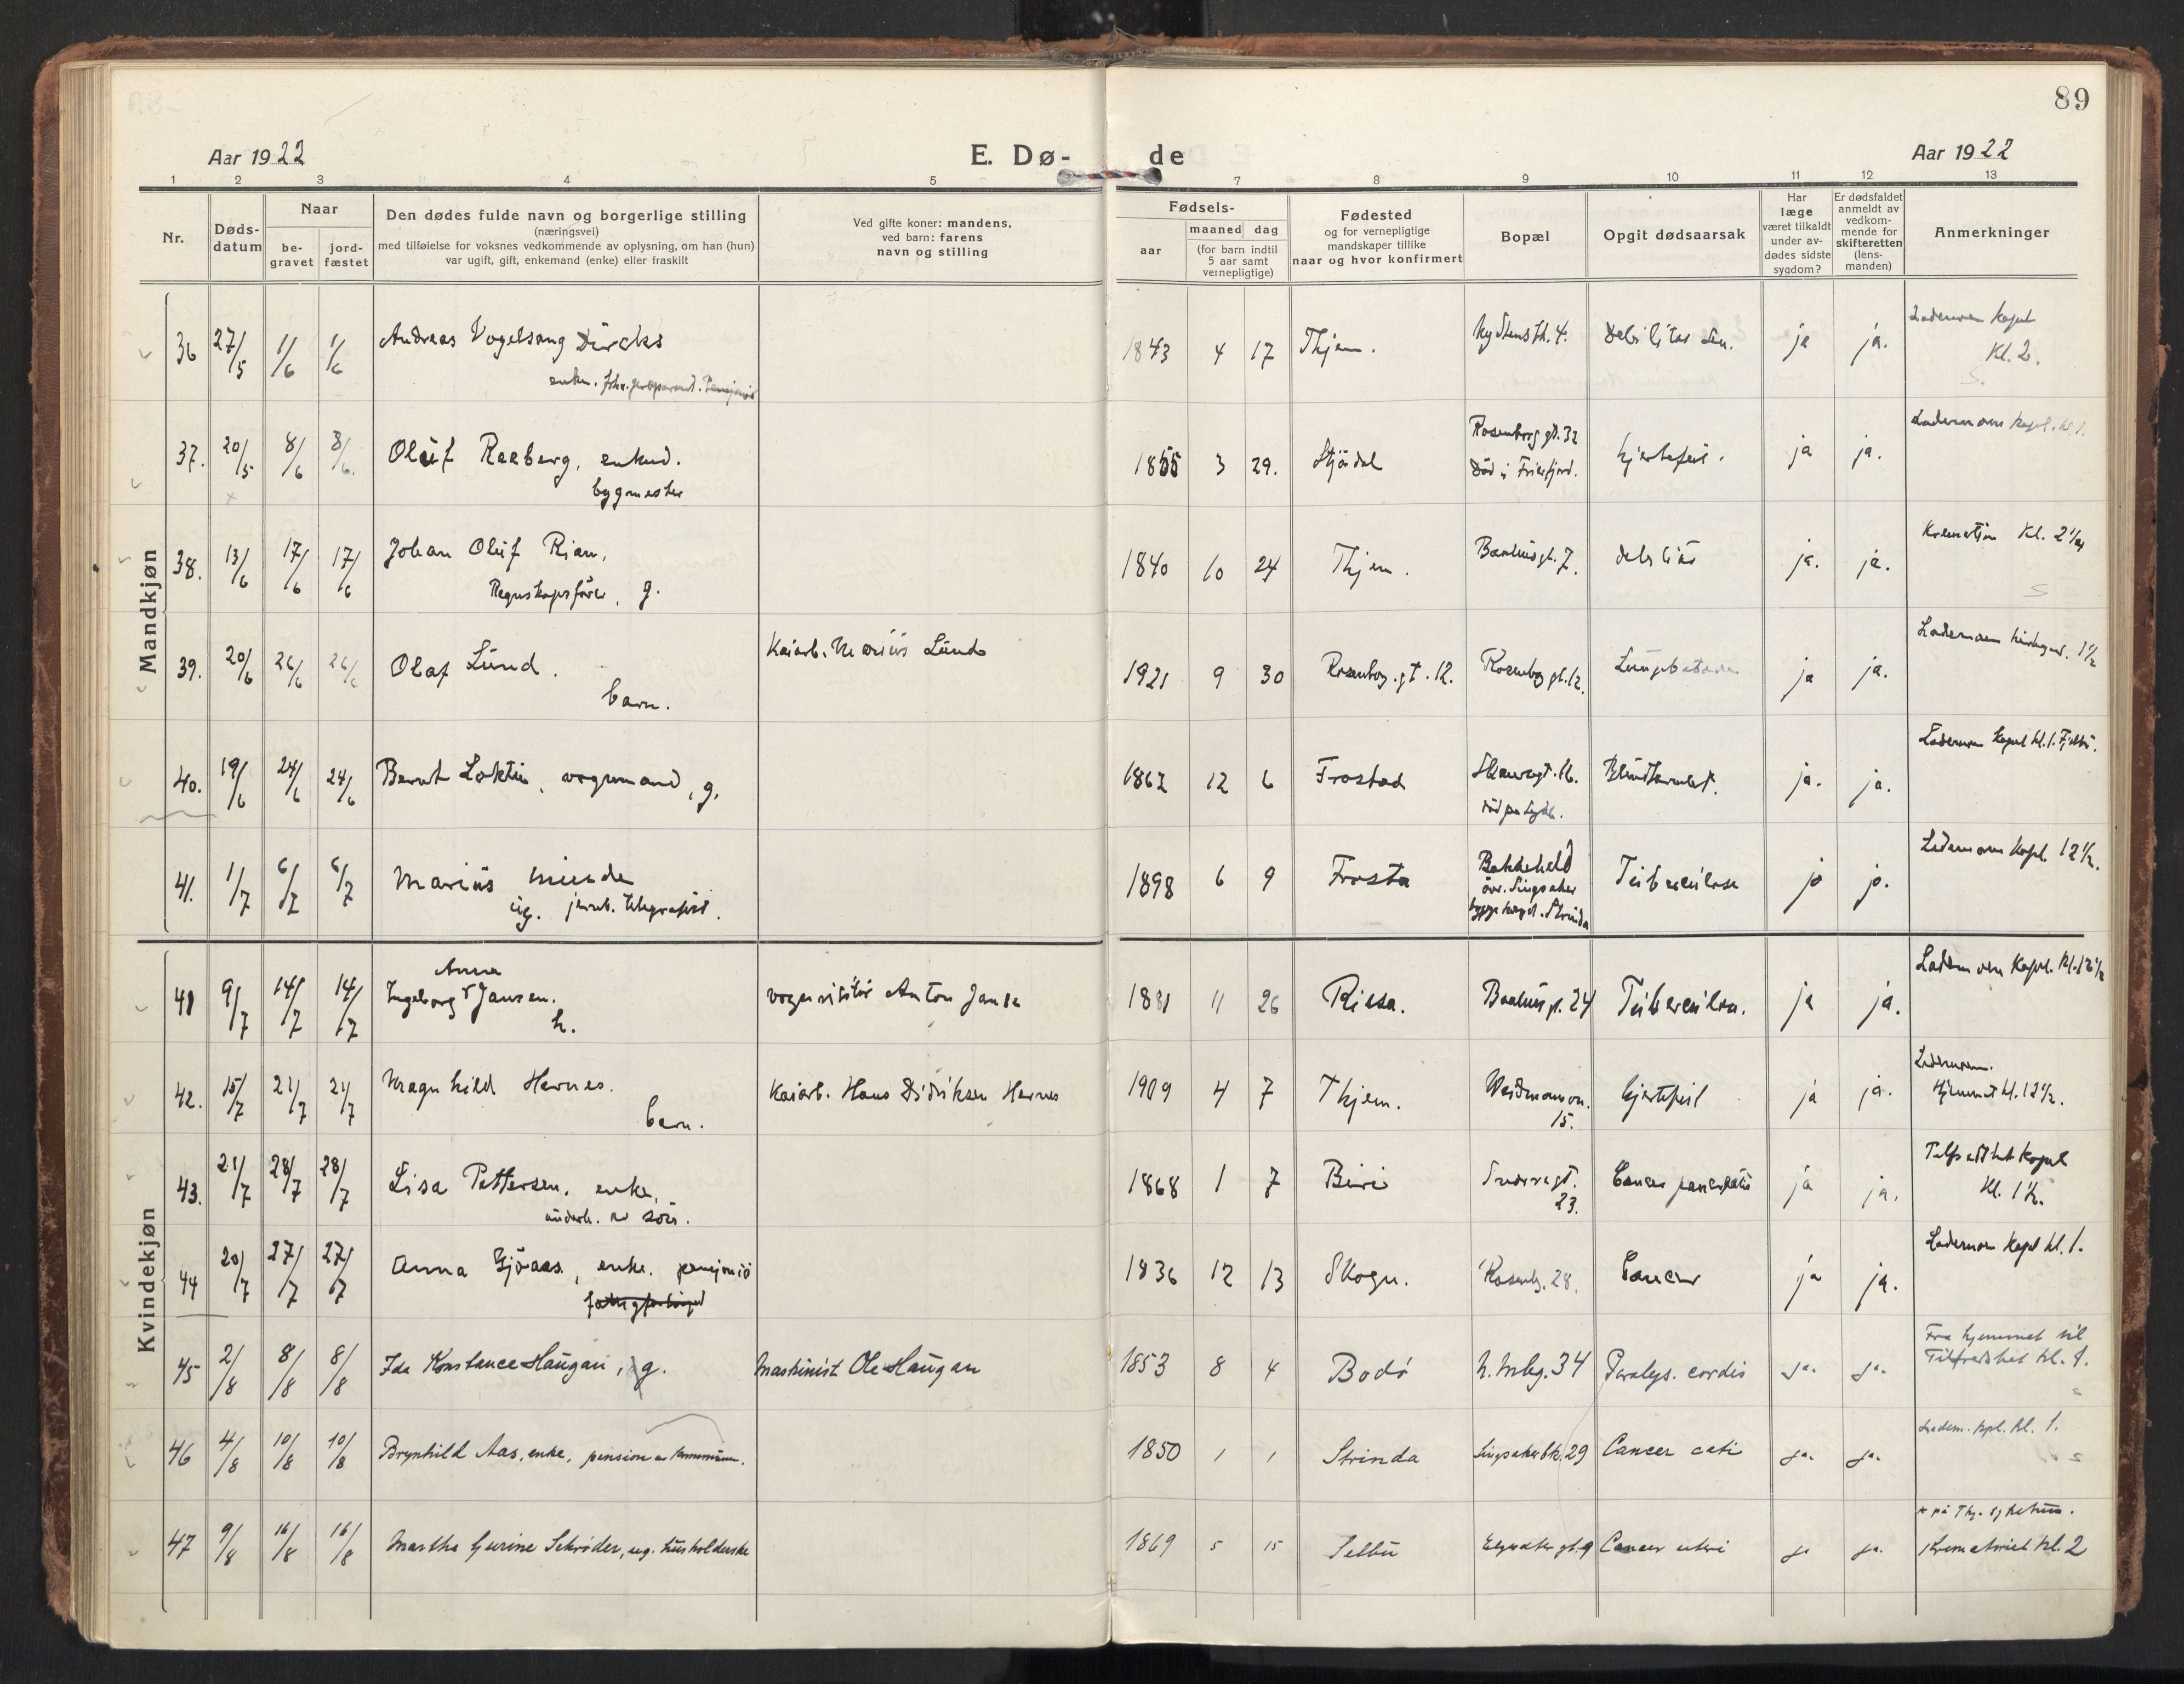 89
Aar 1922
E. Dø-
de
Aar 1922
1 2 3 4 5 7 8 9 10 11 12 13
Nr.
Døds-
datum
Naar
be-
gravet
jord-
fæstet
Den dødes fulde navn og borgerlige stilling
(næringsvei)
med tilføielse for voksnes vedkommende av oplysning, om han (hun)
var ugift, gift, enkemand (enke) eller fraskilt
Ved gifte koner: mandens,
ved barn: farens
navn og stilling
Fødsels-
aar
maaned dag
(for barn indtil
5 aar samt
vernepligtige)
Fødested
og for vernepligtige
mandskaper tillike
naar og hvor konfirmert
Bopæl
Opgit dødsaarsak
Har
læge
været tilkaldt
under av-
dødes sidste
sygdom?
Er dødsfaldet
anmeldt av
vedkom-
mende for
skifteretten
(lens-
manden)
Anmerkninger
Mandkjøn
36 27/5 1/6 1/6 Andreas Vogelsang Dürcks 1843 4 17 Thjem. ja ja. Kl. 2.
37. 20/5 8/6 8/6 Oluf Reeberg, enkmd. 1855 3 29. Stjördal Rosenborg gt. 32 hjertefeil. ja ja. Lademoen kapel. kl. 1.
bygmester
38. 13/6 17/6 17/6 Johan Oluf Rian, 1840 10 24 Thjem. ja. ja. Kl. 2 1/2
Regnskapsfører, g.
39. 20/6 26/6 26/6 Olaf Lund. Kaiarb. Marius Lund 1921 9 30 Rosenborg. gt. 12. Rosenborg gt. 12. ja ja. Lademoen
barn.
40. 19/6 24/6 24/6 Bernt Loktu, vognmand, g. 1862 12 6 Frosta ja. ja. Lademoen kapel kl. 1.
41. 1/7 6/7 6/7 Marius Minde 1898 6 9 Frosta Tuberculose ja ja. Lademoen kapel. 12 1/2.
ug. jernb. telegrafist.
Kvindekjøn
41 9/7 14/7 14/7 Ingeborg Anna Jansen. Anton Jansen 1881 11 26 Rissa. Tuberculose. ja ja. Lademoen kapel. kl. 12 1/2
h.
42. 15/7 21/7 21/7 Magnhild Hernes. Kaiarb. Hans Didriksen Hernes 1909 4 7 Thjem. Weidemannsv. 15. hjertefeil ja ja. Lademoen.
barn. Hjemmet kl. 12 1/2.
43. 21/7 28/7 28/7 Lisa Pettersen, enke, 1868 1 7 Biri 23. Cancer pancreatis ja ja. Tilfredshet kapel
underh. av sön. Kl. 1 1/2.
44 20/7 27/7 27/7 Anna Gjöaas, enke. 1836 12 13 Skogn. Rosenbg. 28. Cancer ja ja. Lademoen kapel kl. 1.
45 2/8 8/8 8/8 Ida Konstance Haugan, g. Maskinist Ole Haugan 1853 8 4 Bodø 34 Paralys. cordis ja. ja. Fra hjemmet til
Tilfredshet kl. 1.
46 4/8 10/8 10/8 Brynhild Aas, enke, pension av kommunen. 1850 1 1 Strinda Singsakerbk. 29 Cancer ja. ja. Ladem. kpl. kl. 1.
47 9/8 16/8 16/8 Martha Gurine Schrøder, ug. husholderske 1869 5 15 Selbu gt. 9 Cancer uteri ja ja. på Thj. sykehus.
Krematoriet kl. 2